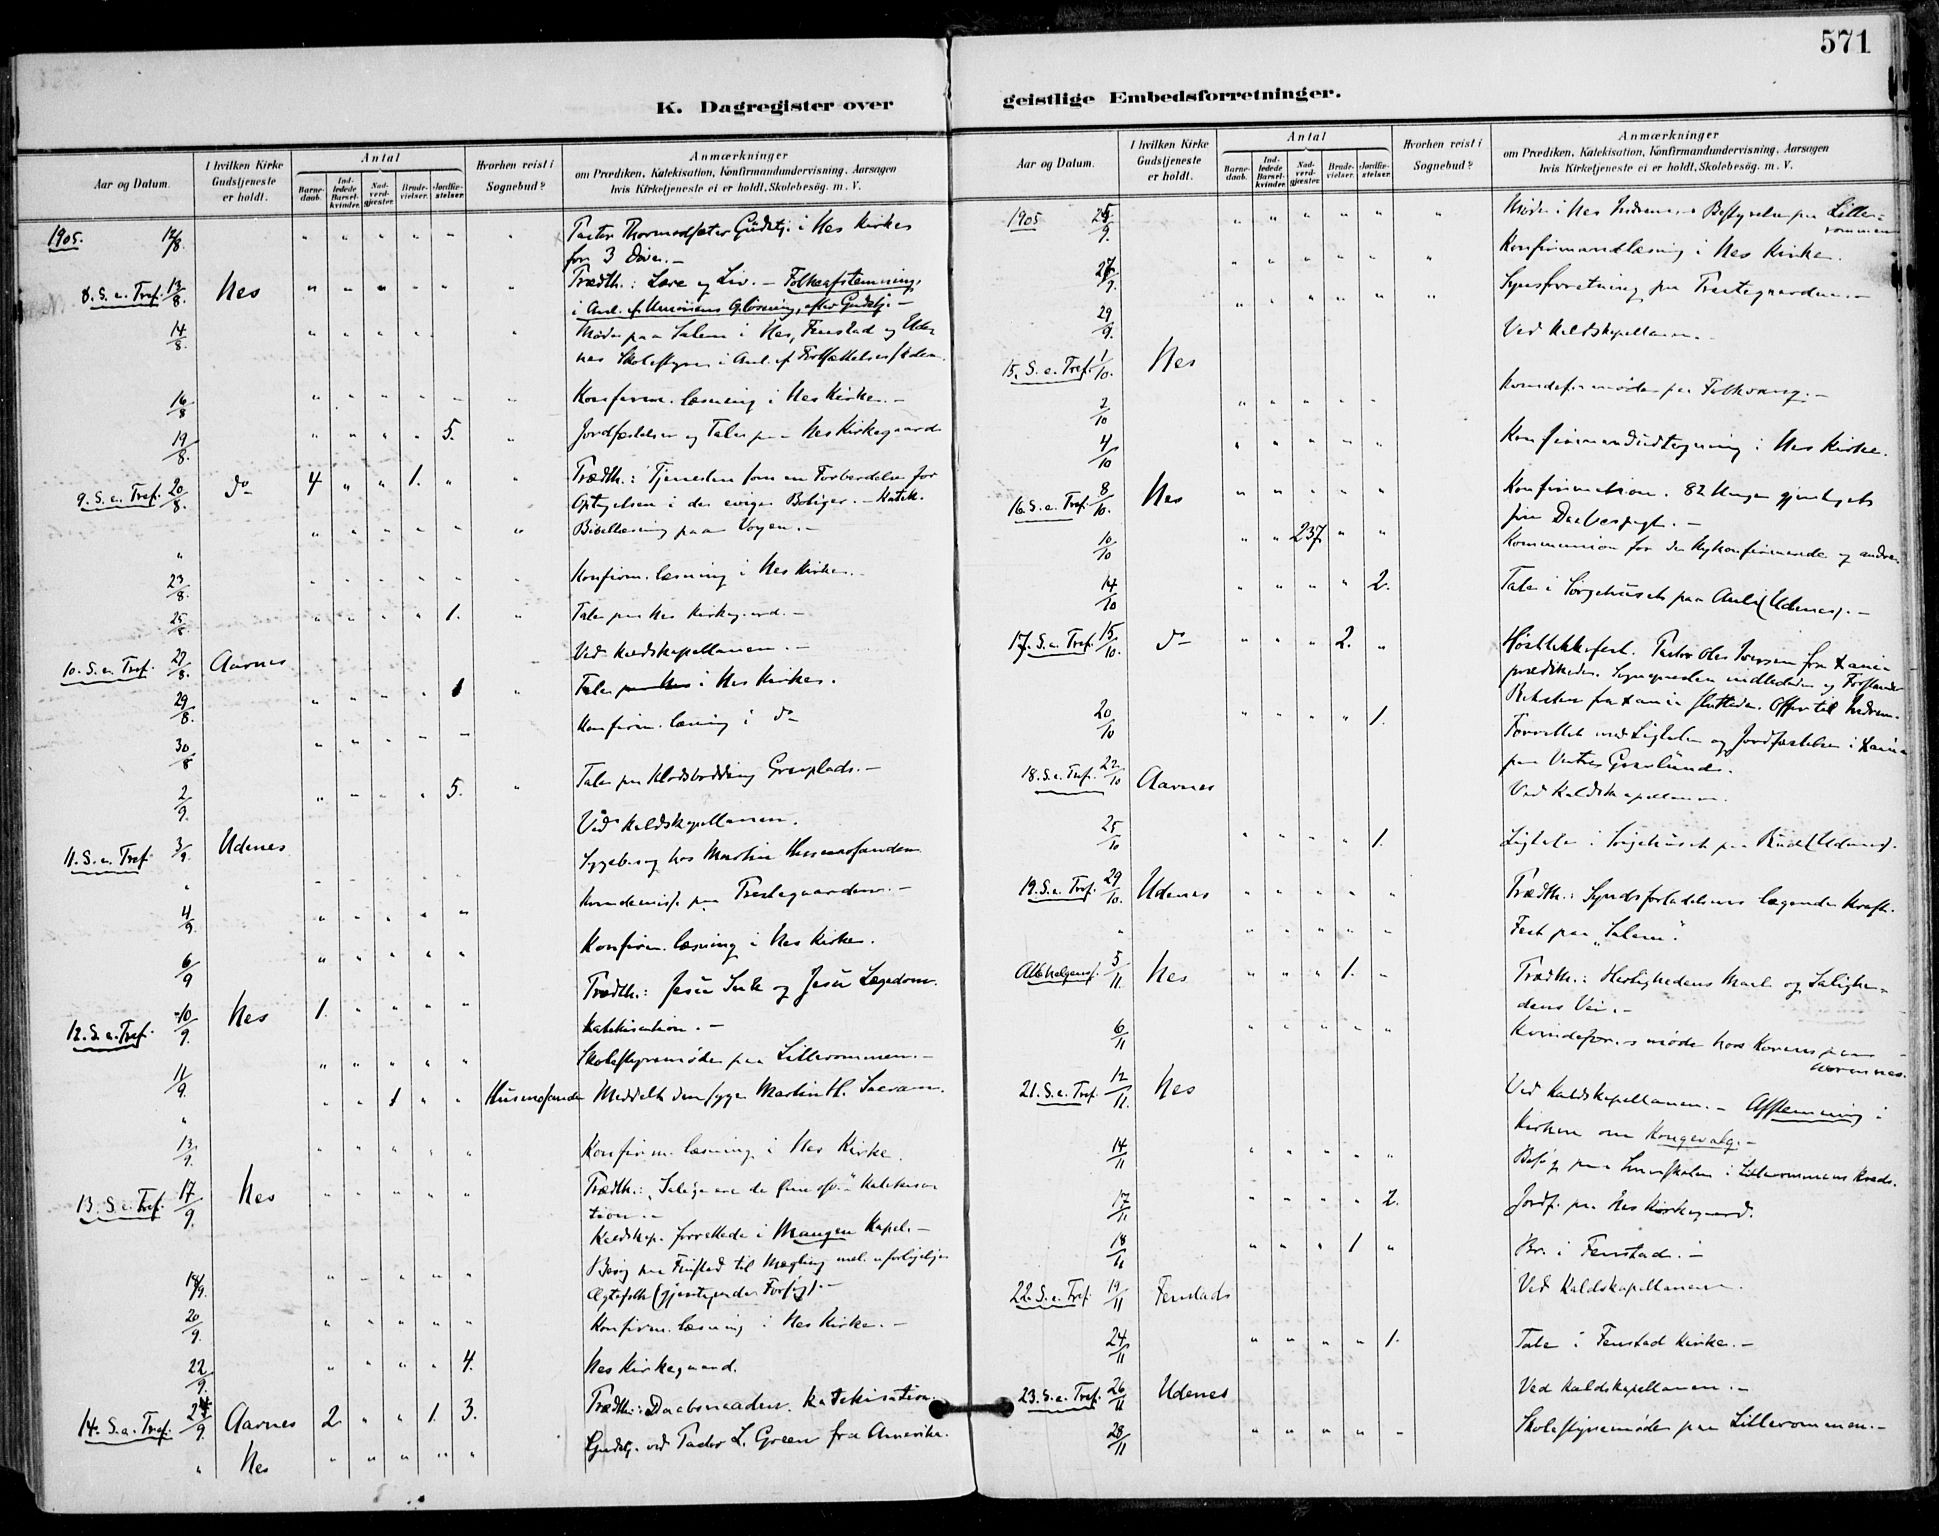 571
K. Dagregister over
Aar og Datum.
I hvilken Kirke Gudstjeneste er holdt.
Antal
Barnedaab.
Indledede Barselkvinder.
Nadverdgjæster.
Brudevielser.
Jordfæstelser.
Hvorhen reist i Sognebud?
Anmærkninger
om Prædiken, Katekisation, Konfirmandundervisning, Aarsagen
hvis Kirketjeneste ei er holdt, Skolebesøg. m. V.
1905. 12/8. " " " " " " Gudstj. i Nes Kirke
for 3 Døve. –
8. S. e. Tref. 13/8. Nes " " " " " " Prædth.: Lære og Liv. – Folkeafstemning,
i Anl. af Unionens Opløsning, efter Gudstj. –
14/8. " " " " " " Møde paa Salem i Nes, Fenstad og Ude-
nes Skolestyre i Anl. af
16/8 " " " " " " Konfirm. læsning i Nes Kirke. –
19/8. " " " " 5. " Jordfæstelse og Tale paa Nes Kirkegaard
9. S. e. Tref. 20/8. do 4 " " 1. " " Prædth.: Tjenesten som en Forberedelse for
Optagelsen i de evige Boliger. – Katek.
" " " " " " " Bibellæsning paa Vogen. –
23/8. " " " " " " Konfirm. læsning i Nes Kirke. –
25/8. " " " " 1. " Tale paa Nes Kirkegaard. –
10. S. e. Tref. 27/8. Aarnes Ved Kaldskapellanen. –
29/8. " " " " 1 " Tale i Nes Kirke.
30/8 " " " " " Konfirm. læsning i do
2/9. " " " " 5. " Tale paa Gravplads. –
11. S. e. Tref. 3/9. Udenes Ved Kaldskapellanen.
" " " " " " Sygebesøg hos Martin Husmosanden
4/9. " " " " " paa Prestegaarden. –
6/9 " " " " " Konfirm. læsning i Nes Kirke.
12. S. e. Tref. 10/9. Nes 1. " " " " Prædth.: Jesu Sorg og Jesu Lægedom.
Katekisation. –
11/9. " " " " " Skolestyremøde paa Lillerommen. –
" " " 1 " " Husmosanden Meddelt den syge Martin H. Sacram.
13/9. " " " " " Konfirm. læsning i Nes Kirke.
13. S. e. Tref. 17/9. Nes " " " " " Prædth.: Salige ere de Katekisa-
tion. –
Kaldskap. forrettede i Mangen Kapel. –
18/9. " " " " " Besøg paa Finstad til Mægling mel. uforligelige
Ægtefolk (gjentagende Forsøg). –
20/9. " " " " " Konfirm. læsning i Nes Kirke. –
22/9. " " " " 4. Nes Kirkegaard.
14. S. e. Tref. 24/9. Aarnes 2 " " 1. 3. Prædth.: Daabsnaaden. Katekisation.
" Nes " " " " " Gudstj. ved Pastor L. Green fra Amerika.
geistlige Embedsforretninger.
Aar og Datum.
I hvilken Kirke Gudstjeneste er holdt.
Antal
Barnedaab.
Indledede Barselkvinder.
Nadverdgjæster.
Brudevielser.
Jordfæstelser.
Hvorhen reist i Sognebud?
Anmærkninger
om Prædiken, Katekisation, Konfirmandundervisning, Aarsagen
hvis Kirketjeneste ei er holdt, Skolebesøg. m. V.
1905 25/9. " " " " " " Møde i Nes Indrem.s Bestyrelse paa Lille-
rommen
27/9. " " " " " " Konfirmandlæsning i Nes Kirke.
29/9. " " " " " " Synsforretning paa Prestegaarden. –
15. S. e. Tref. 1/10. Nes Ved Kaldskapellanen. –
2/10 " " " " " Kvindeforeningsmøde paa Folkvang. –
4/10 " " " " " Konfirmandudtegning i Nes Kirke.
16. S. e. Tref. 8/10. Nes " " " " " Konfirmation. 82 Unge gjentoges
sin Daabspagt. –
10/10 " " 237 " " Kommunion for de Nykonfirmerede og andre.
14/10 " " " " 2. Tale i Sørgehuset paa Auli (Udenes). –
17. S. e. Tref. 15/10. do " " " 2. " Høsttakkefest. Pastor Ole Iversen fra Xania
prædikede. Sognepresten indledede og Forstander
fra Xania sluttede. Offer til Indrem.
20/10 " " " " 1. Forrettet med Ligtale og Jordfæstelse i Xania
paa Vestre Gravlund.
18. S. e. Tref. 22/10 Aarnes Ved Kaldskapellanen.
25/10 " " " " 1. Ligtale i Sørgehuset paa Rud (Udenes).
19. S. e. Tref. 29/10. Udenes " " " " " Prædth.: Syndsforladelsens lægende Kraft.
" " " " " " Fest paa "Salem".
Allehelgensf. 5/11. Nes " " " 1. " Prædth.: Herlighedens Maal og Salighe-
dens Vei. –
6/11 " " " " " Kvindefor.s møde hos paa
21. S. e. Tref. 12/11. Nes Ved Kaldskapellanen. – Afstemning i
Kirken om Kongevalg. –
14/11 " " " " " Besøg paa Smaaskolen i Lillerommens Kreds.
17/11 " " " " 2. Jordf. paa Nes Kirkegaard.
18/11 " " " 1 " Br. i Fenstad. –
22. S. e. Tref. 19/11 Fenstad Ved Kaldskapellanen.
24/11 " " " " 1. Tale i Fenstad Kirke. –
23. S. e. Tref. 26/11 Udenes Ved Kaldskapellanen. –
28/11 " " " " " Skolestyremøde paa Lillerommen. –